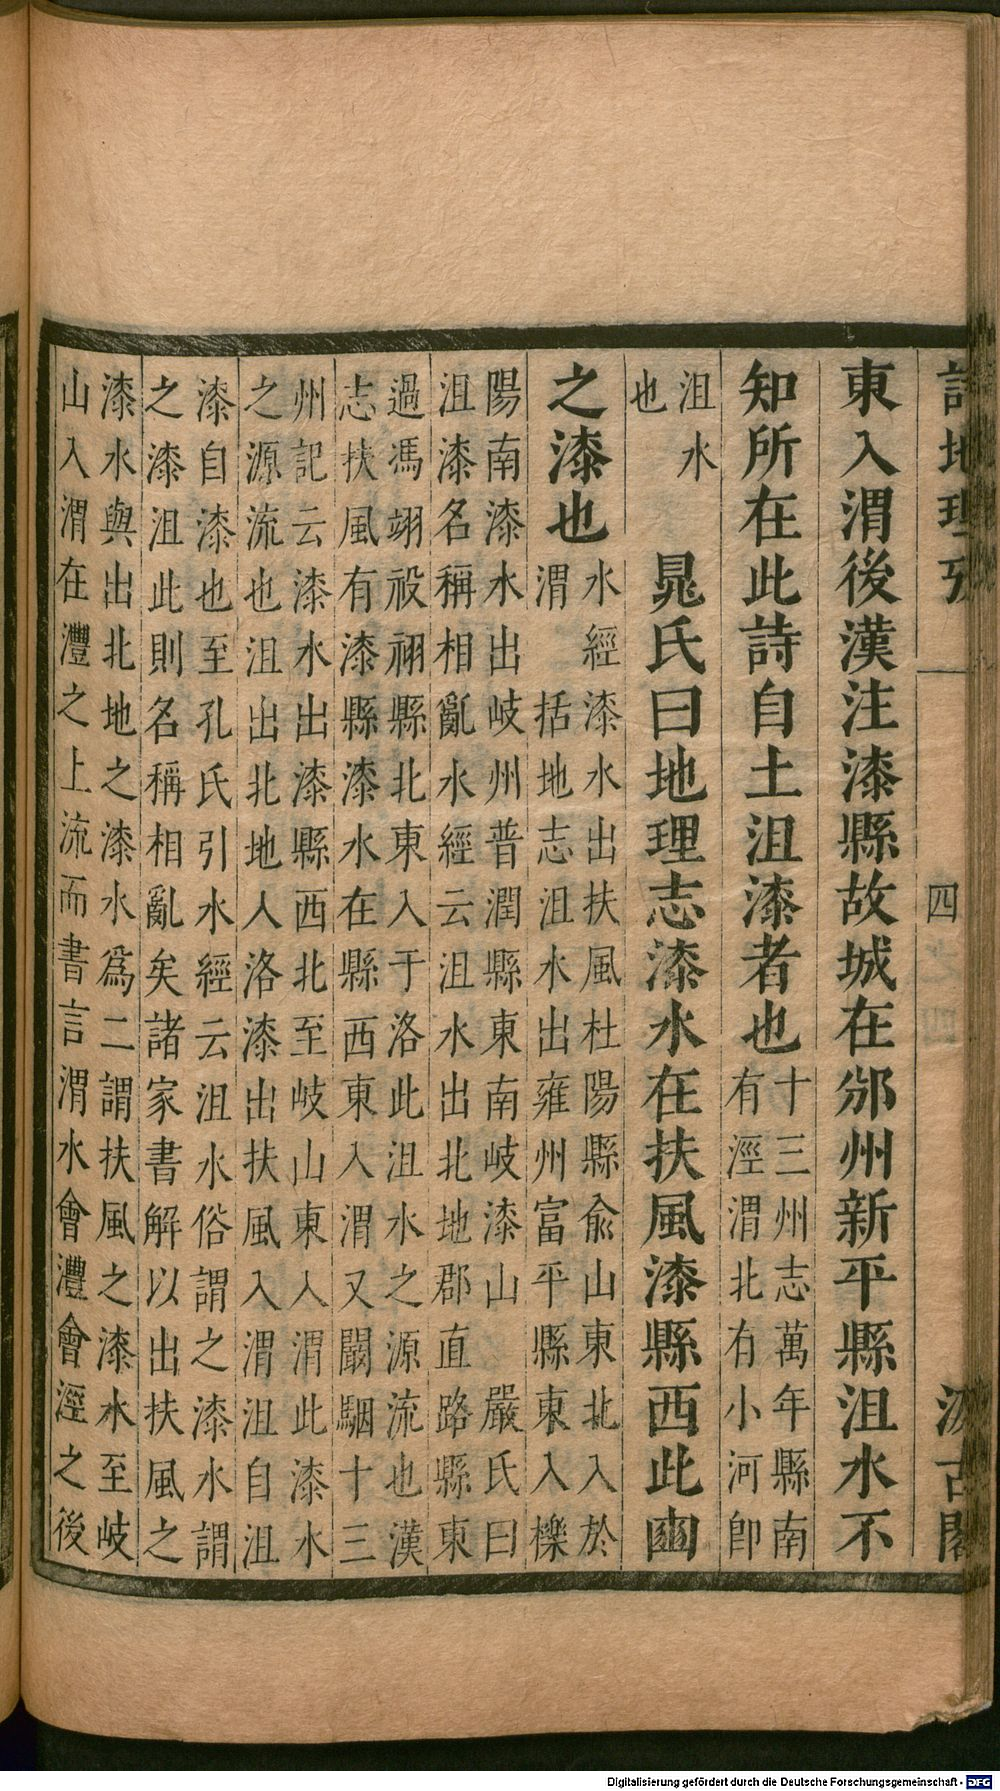 詩地理攷 四 汲古閣
東入渭後漢注漆縣故城在邠州新平縣沮水不
知所在此詩自土沮漆者也
十三州志萬年縣南
有涇渭北有小河卽
沮水
也
晁氏曰地理志漆水在扶風漆縣西此豳
之漆也
水經漆水出扶風杜陽縣俞山東北入於
渭 括地志沮水出雍州富平縣東入櫟
陽南漆水出岐州普潤縣東南岐漆山 嚴氏曰
沮漆名稱相亂水經云沮水出北地郡直路縣東
過馮翊祋祤縣北東入于洛此沮水之源流也漢
志扶風有漆縣漆水在縣西東入渭又闞駰十三
州記云漆水出漆縣西北至岐山東入渭此漆水
之源流也沮出北地入洛漆出扶風入渭沮自沮
漆自漆也至孔氏引水經云沮水俗謂之漆水謂
之漆沮此則名稱相亂矣諸家書解以出扶風之
漆水與出北地之漆水爲二謂扶風之漆水至岐
山入渭在灃之上流而書言渭水會灃會涇之後
Digitalisierung gefördert durch die Deutsche Forschungsgemeinschaft - DFG